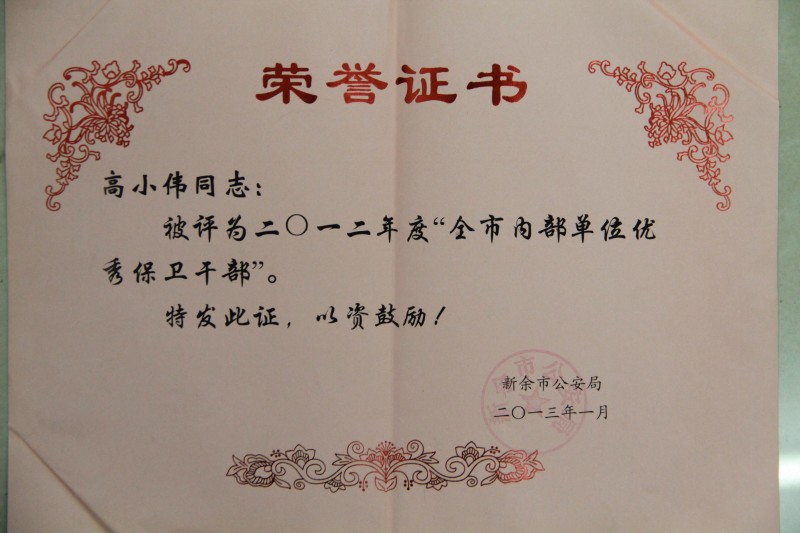 荣誉证书
高小伟同志：
被评为二〇一二年度“全市内部单位优
秀保卫干部”。
特发此证，以资鼓励！
新余市公安局
二〇一三年一月